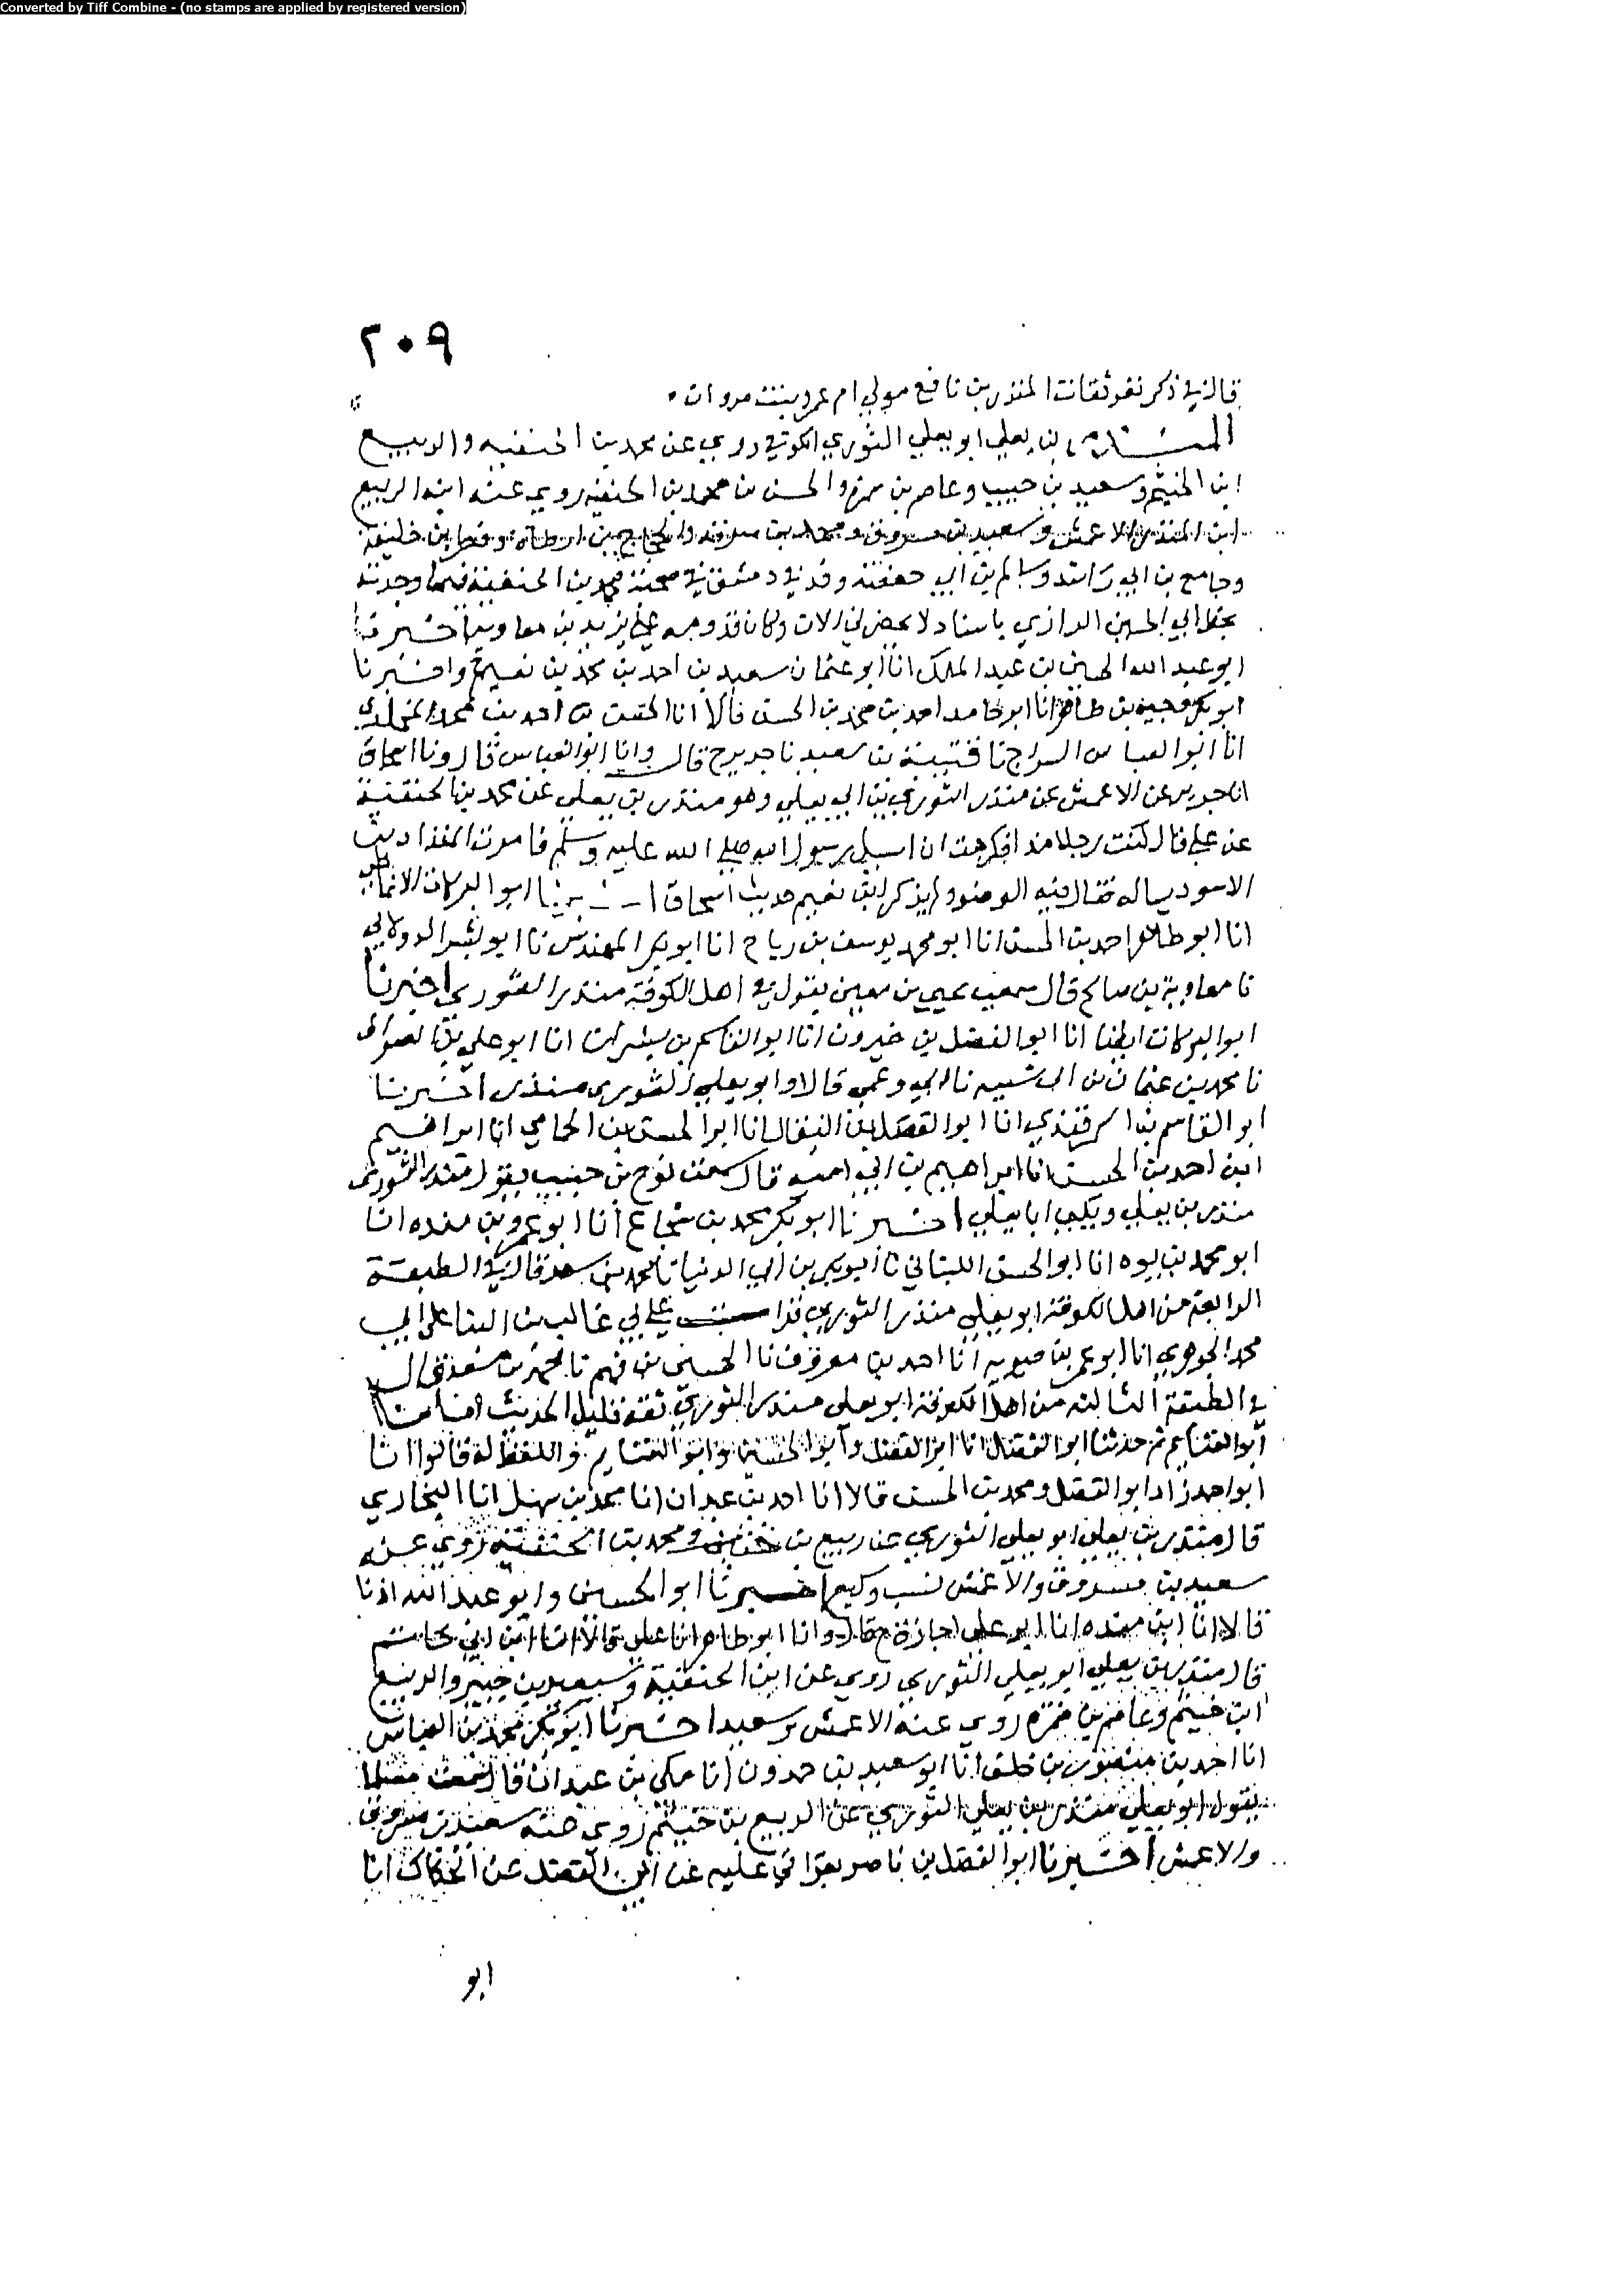 Converted by Tiff Combine - (no stamps are applied by registered version)
٢٠٩
قال في ذكر نفر ثقات المنذر بن نافع مولى ام عمرو بنت مروان
المنذر بن يعلي ابو يعلي الثوري الكوفي روي عن محمد بن الحنفيه والربيع
ابن الخيثم وسعيد بن جبير وعاصم بن ضمره والحسن بن محمد بن الحنفيه روي عنه ابنه الربيع
ابن المنذر والاعمش وسعيد بن مسروق ومحمد بن سوقه والحجاج بن ارطاة وفطر بن خليفة
وجامع بن ابي راشد وسالم بن ابي حفصة وقدم دمشق في صحبة محمد بن الحنفية فيما وجدته
بخط ابي الحسين الرازي باسناد لا يحضرني الان وكان قد وجه علي يزيد بن معاوية اخبرنا
ابو عبد الله الحسين بن عبد الملك انا ابو عثمان سعيد بن احمد بن محمد بن نعيم ح واخبرنا
ابو بكر وجيه بن طاهر انا ابو حامد احمد بن محمد بن الحسن قالا انا الحسن بن احمد بن محمد المخلدي
انا ابو العباس السراج نا قتيبة بن سعيد نا جرير ح قال وانا ابو العباس قال ونا اسحاق
انا جرير عن الاعمش عن منذر الثوري بن ابي يعلي وهو منذر بن يعلي عن محمد بن الحنفية
عن علي قال كنت رجلا مذا فكرهت ان اسيل رسول الله صلي الله عليه وسلم فامرت المقداد بن
الاسود يساله فقال فيه الوضو ولم يذكر ابن نعيم حديث اسحاق اخبرنا ابو البركات الانماطي
انا ابو طاهر احمد بن الحسن انا ابو محمد يوسف بن رباح انا ابو بكر المهندس نا ابو بشر الدولابي
نا معاوية بن صالح قال سمعت يحيي بن معين يقول في اهل الكوفة منذر الثوري اخبرنا
ابو البركات ايضا انا ابو الفضل بن خيرون انا ابو القاسم بن بشران انا ابو علي بن الصواف
نا محمد بن عثمان بن ابي شيبه نا ابي وعمي قالا وابو يعلي الثوري منذر اخبرنا
ابو القاسم بن السمرقندي انا ابو الفضل بن البقال انا ابو الحسن بن الحمامي انا ابراهيم
ابن احمد بن الحسن انا ابراهيم بن ابي اميه قال سمعت نوح بن حبيب يقول منذر الثوري
منذر بن يعلي ويكني ابا يعلي اخبرنا ابو بكر محمد بن شجاع انا ابو عمرو بن منده انا
ابو محمد بن يوه انا ابو الحسن اللبناني نا ابو بكر بن ابي الدنيا نا محمد بن سعد قال في الطبقة
الرابعة من اهل الكوفة ابو يعلي منذر الثوري قرات علي ابي غالب بن البنا علي ابي
محمد الجوهري انا ابو عمر بن حيويه انا احمد بن معروف نا الحسين بن فهم نا محمد بن سعد قال
في الطبقة الثالثه من اهل الكوفة ابو يعلي منذر الثوري ثقة قليل الحديث انبانا
ابو الغنايم ثم حدثنا ابو الفضل انا ابو الفضل وابو الحسين وابو الغنايم واللفظ له قالوا انا
ابو احمد زاد ابو الفضل ومحمد بن الحسن قالا انا احمد بن عبدان انا محمد بن سهل انا البخاري
قال منذر بن يعلي ابو يعلي الثوري عن ربيع بن خثيم ومحمد بن الحنفية روي عنه
سعيد بن مسروق والاعمش نسبه وكيع اخبرنا ابو الحسين وابو عبد الله اذنا
قالا انا ابن منده انا ابو علي اجازة ح قال وانا ابو طاهر انا علي قالا انا ابن ابي حاتم
قال منذر بن يعلي ابو يعلي الثوري روي عن ابن الحنفية وسعيد بن جبير والربيع
ابن خثيم وعاصم بن ضمره روي عنه الاعمش وسعيد اخبرنا ابو بكر محمد بن العباس
انا احمد بن منصور بن خلف انا ابو سعيد بن حمدون انا مكي بن عبدان قال سمعت مسلما
يقول ابو يعلي منذر بن يعلي الثوري عن الربيع بن خيثم روي عنه سعيد بن مسروق
والاعمش اخبرنا ابو الفضل بن ناصر بقراتي عليه عن ابي الفضل بن الحكاك انا
ابو